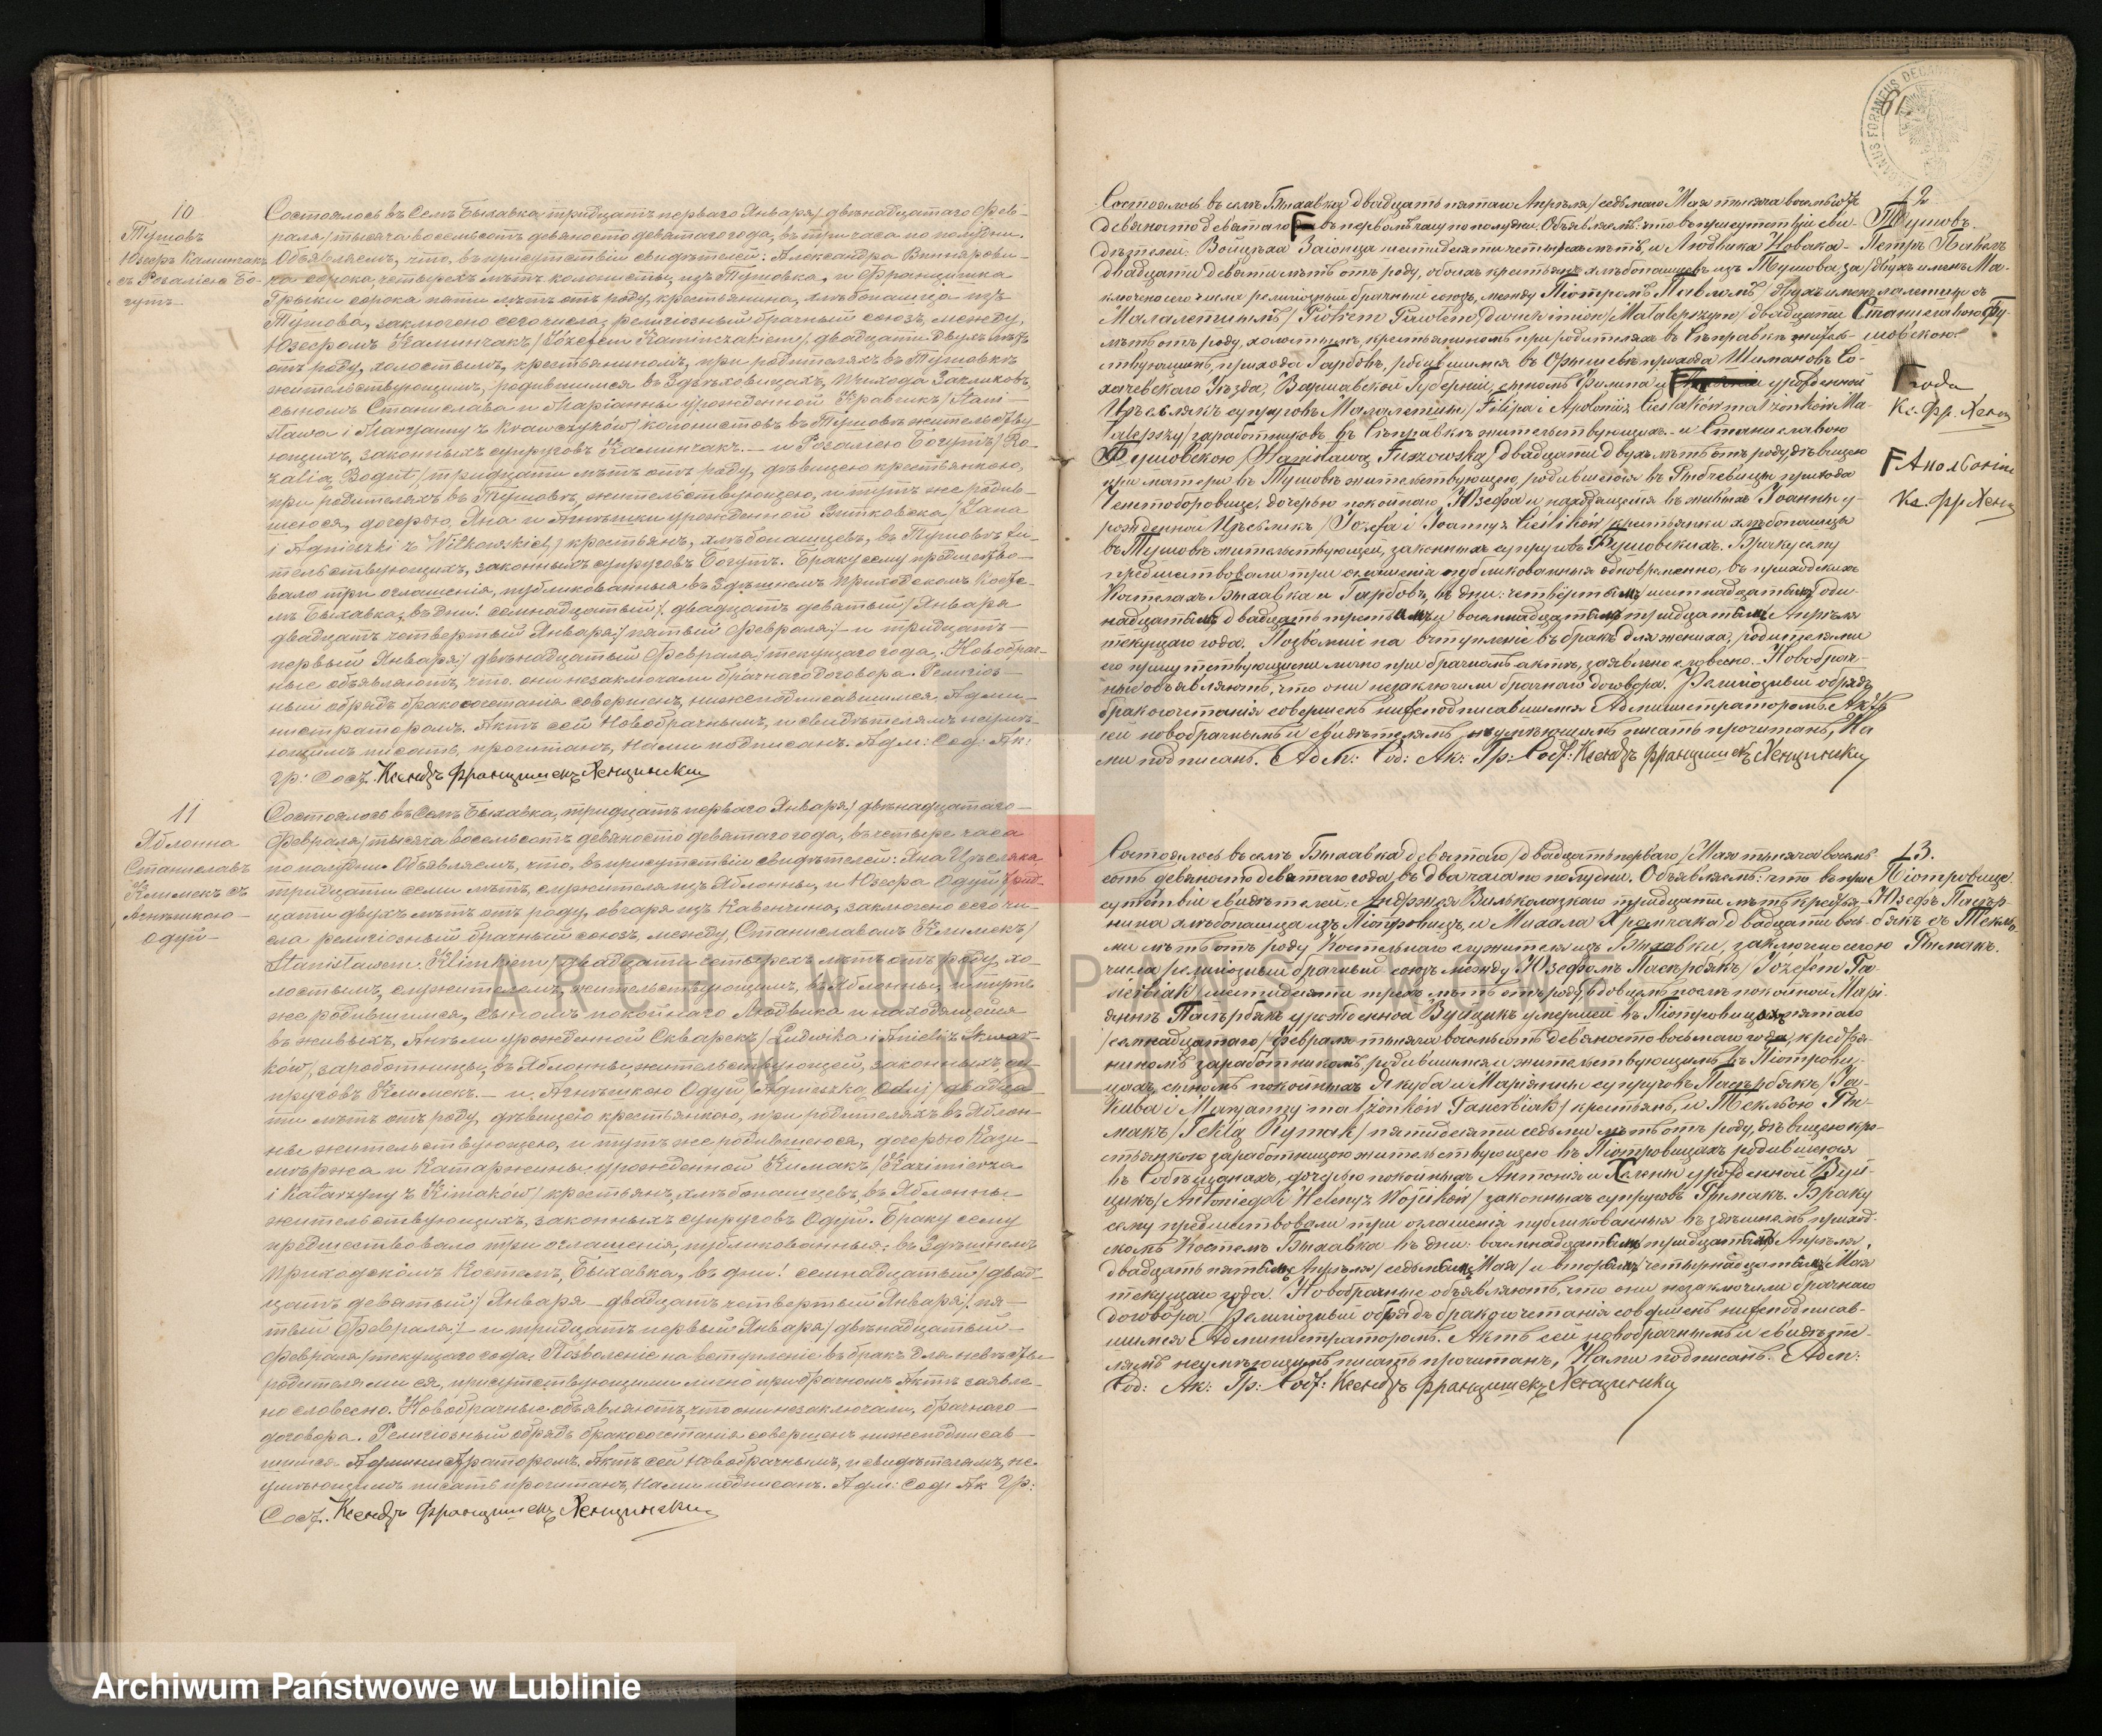 10
Тушовъ
Юзефъ Каминчакъ
съ Розаліею Бо-
гутъ
Состоялось въ Селѣ Быхавка, тридцать перваго Января / двѣнадцатаго Фев-
раля / тысяча восемьсотъ девяносто девятаго года, въ три часа по полудни.
Объявляемъ, что, въ присутствіи свидѣтелей: Александра
сорока четырехъ лѣтъ колониста, изъ Тушовка, и Францишка
Грыки сорока пяти лѣтъ отъ роду, крестьянина, хлѣбопашца изъ
Тушова, заключено сего числа, религіозный брачный союзъ, между,
Юзефомъ Каминчакъ / Józefem Kaminczakiem /, двадцати двухъ лѣтъ
отъ роду, холостымъ, крестьяниномъ, при родителяхъ въ Тушовкѣ
жительствующимъ, родившимся въ Здѣховицахъ, прихода Закликовъ,
сыномъ Станислава и Маріанны урожденной Кравчикъ / Stani-
sława i Maryanny z Krawczyków / колонистовъ въ Тушовкѣ жительству-
ющихъ, законныхъ супруговъ Каминчакъ. — и Розаліею Богутъ / Ro-
zalią Bogut / тридцати лѣтъ отъ роду, дѣвицею крестьянкою,
при родителяхъ въ Тушовѣ, жительствующею, и тутъ же родив-
шеюся, дочерью, Яна и Агнѣшки урожденной Витковска / Jana
i Agnieszki z Witkowskich / крестьянъ, хлѣбопашцевъ, въ Тушовѣ жи-
тельствующихъ, законныхъ супруговъ Богутъ. Браку сему предшество-
вало три оглашенія, публикованныя въ Здѣшнемъ Приходскомъ Косте-
лѣ Быхавка, въ дни: семнадцатый / двадцать девятый / Января
двадцать четвертый Января / пятый Февраля / — и тридцать —
первый Января / двѣнадцатый Февраля / текущаго года. Новобрач-
ные объявляютъ, что они незаключали брачнаго договора. Религіоз-
ный обрядъ бракосочетанія совершенъ, нижеподписавшимся Адми-
нистраторомъ. Актъ сей Новобрачнымъ, и свидѣтелямъ неумѣ-
ющимъ писать, прочитанъ, Нами подписанъ. Адм: Сод: Ак:
Гр: Сост. Ксендзъ Францишекъ Хенцински
11
Яблонна
Станиславъ
Климекъ съ
Агнѣшкою
Одуй
Состоялось въ Селѣ Быхавка, тридцать перваго Января / двѣнадцатаго
Февраля / тысяча восемьсотъ девяносто девятаго года, въ четыре часа
по полудни. Объявляемъ, что, въ присутствіи свидѣтелей: Яна Цѣсляка
тридцати семи лѣтъ, служителя изъ Яблонны, и Юзефа Одуй трид-
цати двухъ лѣтъ отъ роду, овчаря изъ Кавенчина, заключено сего чи-
сла религіозный брачный союзъ, между, Станиславомъ Климекъ /
Stanisławem Klimkiem / двадцати четырехъ лѣтъ отъ роду, хо-
лостымъ, служителемъ, жительствующимъ, въ Яблоннѣ, и тутъ
же родившимся, сыномъ покойнаго Людвика и находящейся
въ живыхъ, Анели урожденной Скварекъ / Ludwika i Anieli z Skwar-
ków /, зароботницы, въ Яблоннѣ жительствующей, законныхъ су-
пруговъ Климекъ. — и Агнѣшкою Одуй / Agnieszką Oduj / двадца-
ти лѣтъ отъ роду, дѣвицею крестьянкою, при родителяхъ въ Яблон-
нѣ жительствующею, и тутъ же родившеюся, дочерью Кази-
мѣржа и Катаржины урожденной Кимакъ / Kazimierza
i Katarzyny z Kimaków / крестьянъ, хлѣбопашцевъ, въ Яблоннѣ
жительствующихъ, законныхъ супруговъ Одуй. Браку сему
предшествовало три оглашенія, публикованныя, въ Здѣшнемъ
Приходскомъ Костелѣ, Быхавка, въ дни: семнадцатый / двад-
цать девятый / Января — двадцать четвертый Января / пя-
тый Февраля / — и тридцать первый Января / двѣнадцатый —
Февраля / текущаго года. Позволеніе на вступленіе въ бракъ для невѣсты
родителями ея, присутствующими лично при брачномъ Актѣ заявле-
но словесно. Новобрачные объявляютъ, что они незаключали, брачнаго
договора. Религіозный обрядъ бракосочетанія совершенъ нижеподписав-
шимся Администраторомъ. Актъ сей Новобрачнымъ, и свидѣтелямъ, не-
умѣющимъ писать прочитанъ, Нами подписанъ. Адм: Сод: Ак Гр:
Сост. Ксендзъ Францишекъ Хенцински
61.
12
Тушовъ
Петръ Павелъ
/двухъ именъ/ Ма-
малетшы съ
Станиславою Фу-
шовскою.
года
Кс. Фр. Хенц
Аполоніи
Кс. Фр. Хенц
Состоялось въ селѣ Быхавка двадцать пятаго Апрѣля / седьмаго Мая тысяча восемьсотъ
девяносто девятаго въ первомъ часу по полудни. Объявляемъ: что въ присутствіи сви-
дѣтелей: Войцѣха Заіонца шестидесяти четырехъ лѣтъ, и Людвика Новака
двадцати девяти лѣтъ отъ роду, обоихъ крестьянъ хлѣбопашцевъ изъ Тушова, за-
ключено сего числа религіозный брачный союзъ, между Піотромъ Павломъ / двухъ именъ
Малалетшымъ / Piotrem Pawłem / dwóch imion / Małalepszym / двадцати
лѣтъ отъ роду, холостымъ, крестьяниномъ при родителяхъ въ Сѣправкѣ житель-
ствующимъ, прихода Гарбовъ, родившимся въ Орышевѣ прихода Шимановъ Со-
хачевскаго Уѣзда, Варшавской Губерніи, сыномъ Филипа и урожденной
Цѣслякъ супруговъ Малалетшы / Filipa i Apolonii z Cieślaków małżonków Ma-
łalepszy / заработниковъ, въ Сѣправкѣ жительствующихъ. — и Станиславою
Фушовскою / Stanisławą Fuszowską / двадцати двухъ лѣтъ отъ роду дѣвицею
при матери въ Тушовѣ жительствующею, родившеюся въ прихода
Чентоборовице, дочерью покойнаго Юзефа и находящейся въ живыхъ Іоанны у-
рожденной Цѣсликъ / Józefa i Joanny z Cieślików / крестьянки хлѣбопашцы
въ Тушовѣ жительствующей, законныхъ супруговъ Фушовскихъ. Браку сему
предшествовали три оглашенія публикованныя одновременно, въ приходскихъ
Костелахъ Быхавка и Гарбовъ, въ дни: четвертый / шестнадцатый / оди-
надцатый / двадцать третій / и восемнадцатый / тридцатый / Апрѣля
текущаго года. Позволеніе на вступленіе въ бракъ для жениха, родителями
его присутствующими лично при брачномъ актѣ, заявлено словесно. Новобрач-
ные объявляютъ, что они незаключили брачнаго договора. Религіозный обрядъ
бракосочетанія совершенъ нижеподписавшимся Администраторомъ. Актъ
сей новобрачнымъ и свидѣтелямъ неумѣющимъ писать прочитанъ, На-
ми подписанъ. Адм.: Сод: Ак: Гр: Сост: Ксендзъ Францишекъ Хенцински
13.
Піотровице.
Юзефъ Пасѣр-
бякъ съ Теклею
Рымакъ.
Состоялось въ селѣ Быхавка девятаго / двадцать перваго / Мая тысяча восемь-
сотъ девяносто девятаго года, въ два часа по полудни. Объявляемъ: что въ при-
сутствіи свидѣтелей: Андржея Вильколазкаго тридцати лѣтъ крестья-
нина хлѣбопашца изъ Піотровицъ, и Михала Хромчака двадцати вось-
ми лѣтъ отъ роду Костельнаго служителя изъ Быхавки, заключено сего
числа религіозный брачный союзъ между Юзефомъ Пасѣрбякъ / Józefem Pa-
sierbiak / шестидесяти трехъ лѣтъ отъ роду, вдовцемъ послѣ покойной Марі-
янны Пасѣрбякъ урожденной Вуйцикъ умершей въ Піотровицахъ пятаго
/ семнадцатаго / Февраля тысяча восемьсотъ девяносто восьмаго года, крестья-
ниномъ заработникомъ, родившимся и жительствующимъ въ Піотрови-
цахъ, сыномъ покойныхъ Якуба и Маріянны супруговъ Пасѣрбякъ / Ja-
kuba i Maryanny małżonków Pasierbiak / крестьянъ, и Теклею Ры-
макъ / Teklą Rymak / пятидесяти седьми лѣтъ отъ роду, дѣвицею кре-
стьянкою заработницею жительствующею въ Піотровицахъ родившеюся
въ Собѣщанахъ, дочерью покойныхъ Антонія и Хелены урожденной Вуй-
цикъ / Antoniego i Heleny z Wójcików / законныхъ супруговъ Рымакъ. Браку
сему предшествовали три оглашенія публикованныя въ здѣшнемъ приход-
скомъ Костелѣ Быхавка въ дни: восемнадцатый / тридцатый / Апрѣля,
двадцать пятый Апрѣля / седьмый Мая / и вторый / четырнадцатый Мая
текущаго года. Новобрачные объявляютъ, что они незаключили брачнаго
договора. Религіозный обрядъ бракосочетанія совершенъ нижеподписав-
шимся Администраторомъ. Актъ сей новобрачнымъ и свидѣте-
лямъ неумѣющимъ писать прочитанъ, Нами подписанъ. Адм:
Сод: Ак: Гр: Сост: Ксендзъ Францишекъ Хенцински
ARCHIWUM PAŃSTWOWE
W LUBLINIE
Archiwum Państwowe w Lublinie